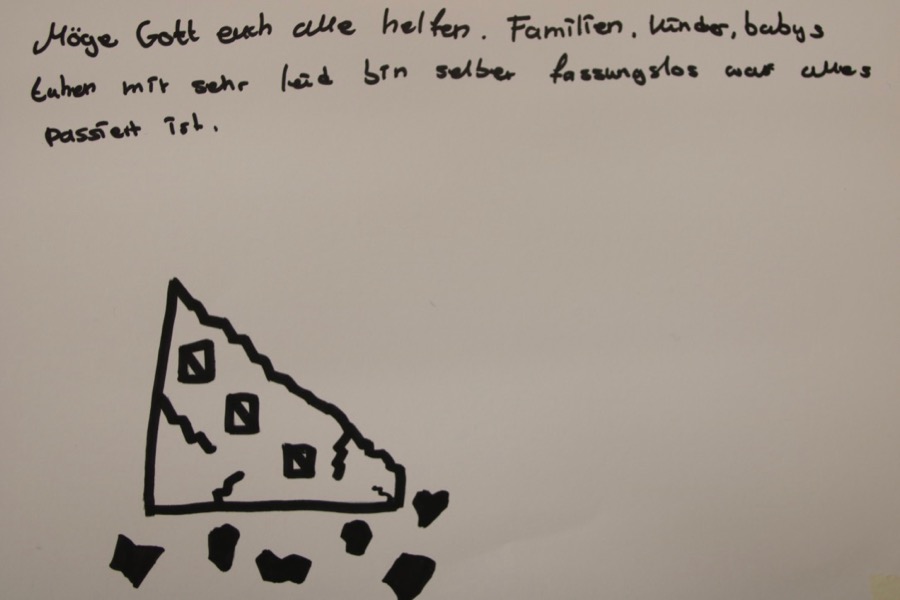 Möge Gott euch alle helfen. Familien, Kinder, babys
tuhen mir sehr leid bin selber fassungslos was alles
passiert ist.